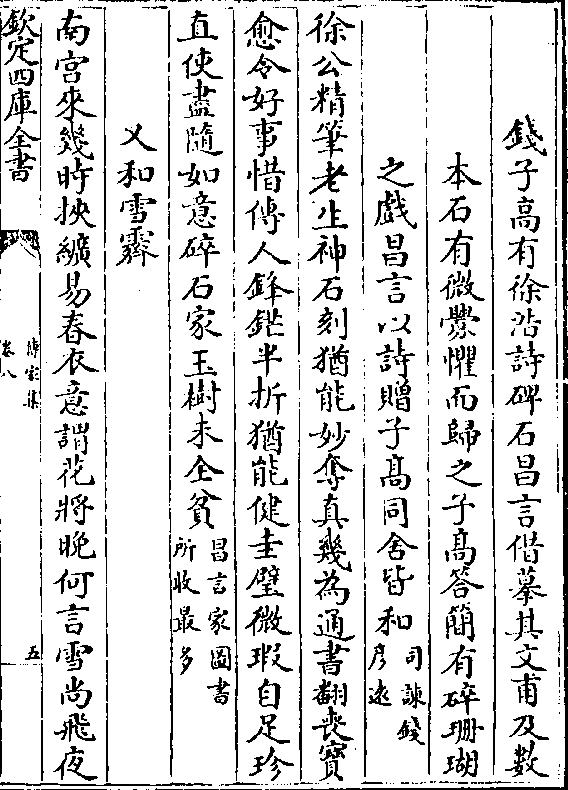 錢子高有徐浩詩碑石昌言偕摹其文甫及數
本石有微釁懼而歸之子高答簡有碎珊瑚
之戲昌言以詩贈子高同舍皆和司諫錢
彦逺
徐公精筆老生神石刻猶能妙奪真幾為通書翻喪寳
愈令好事惜傳人鋒鋩半折猶能健圭璧微瑕自足珍
直使盡隨如意碎石家玉樹未全貧昌言家圖書
所收最多
又和雪霽
南宫來幾時挾纊易春衣意謂花將晚何言雪尚飛夜
欽定四庫全書
傳家集
卷八
五